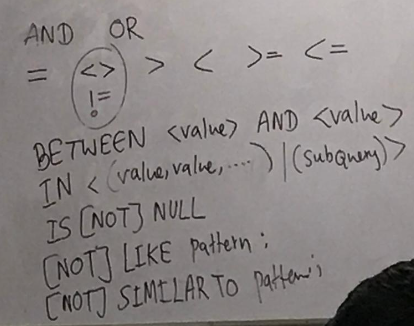 AND OR
= <> > < >= <=
!=
BETWEEN <value> AND <value>
IN <(value,value,....)|(subquery)>
IS [NOT] NULL
[NOT] LIKE pattern;
[NOT] SIMILAR TO pattern;